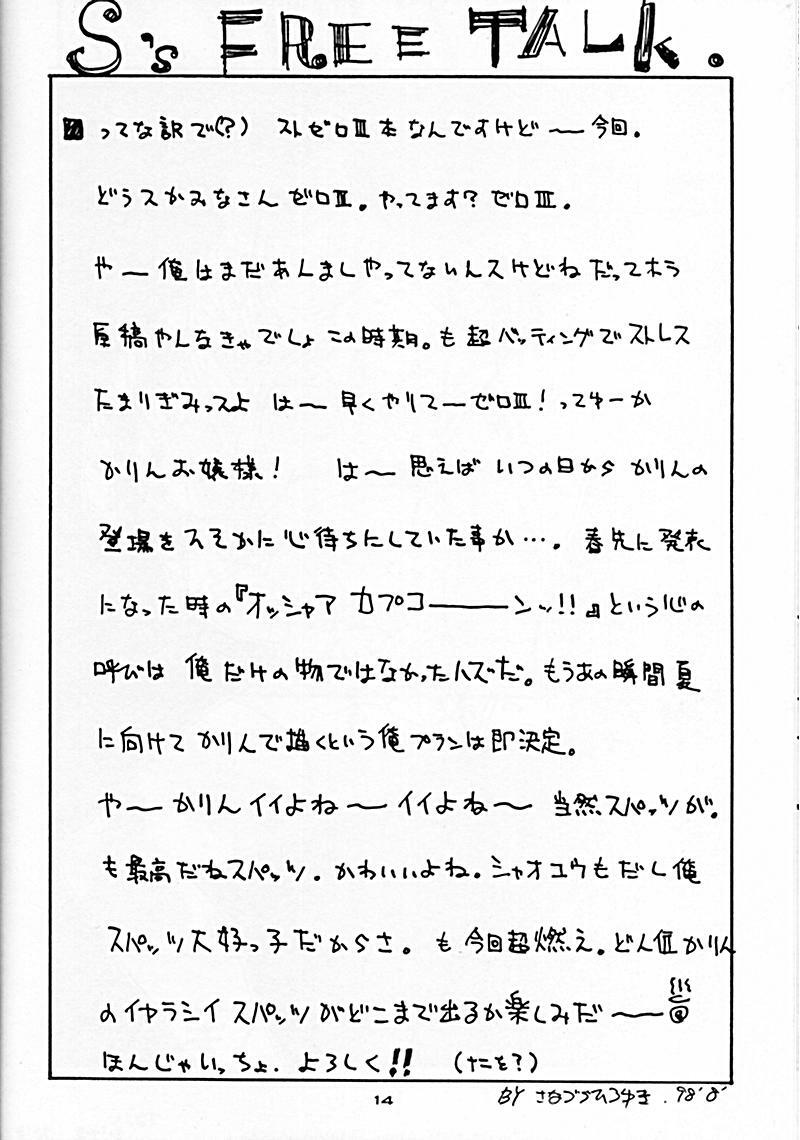 S's FREE TALK.
ってな訳で(?) ストゼロⅢ本なんですけど〜今回。
どうスかみなさんゼロⅢ。やってます?ゼロⅢ。
や〜俺はまだあんましやってないんスけどねだってホラ
原稿やんなきゃでしょこの時期。も超バッティングでストレス
たまりぎみっスよ は〜早くやりてーゼロⅢ!ってゆーか
かりんお嬢様! は〜思えばいつの日からかりんの
登場をひそかに心待ちにしていた事か…。春先に発表
になった時の『オッシャアカプコーーーンッ!!』という心の
呼びは俺だけの物ではなかったハズだ。もうあの瞬間夏
に向けてかりんで描くという俺プランは即決定。
や〜かりんイイよね〜イイよね〜当然スパッツが。
も最高だねスパッツ。かわいいよね。シャオユウもだし俺
スパッツ大好っ子だからさ。も今回超燃え。どん位かりん
のイヤラシイスパッツがどこまで出るか楽しみだ〜
ほんじゃいっちょ.よろしく!! (ナニを?)
14
BY さなづらひろゆき.98'8'